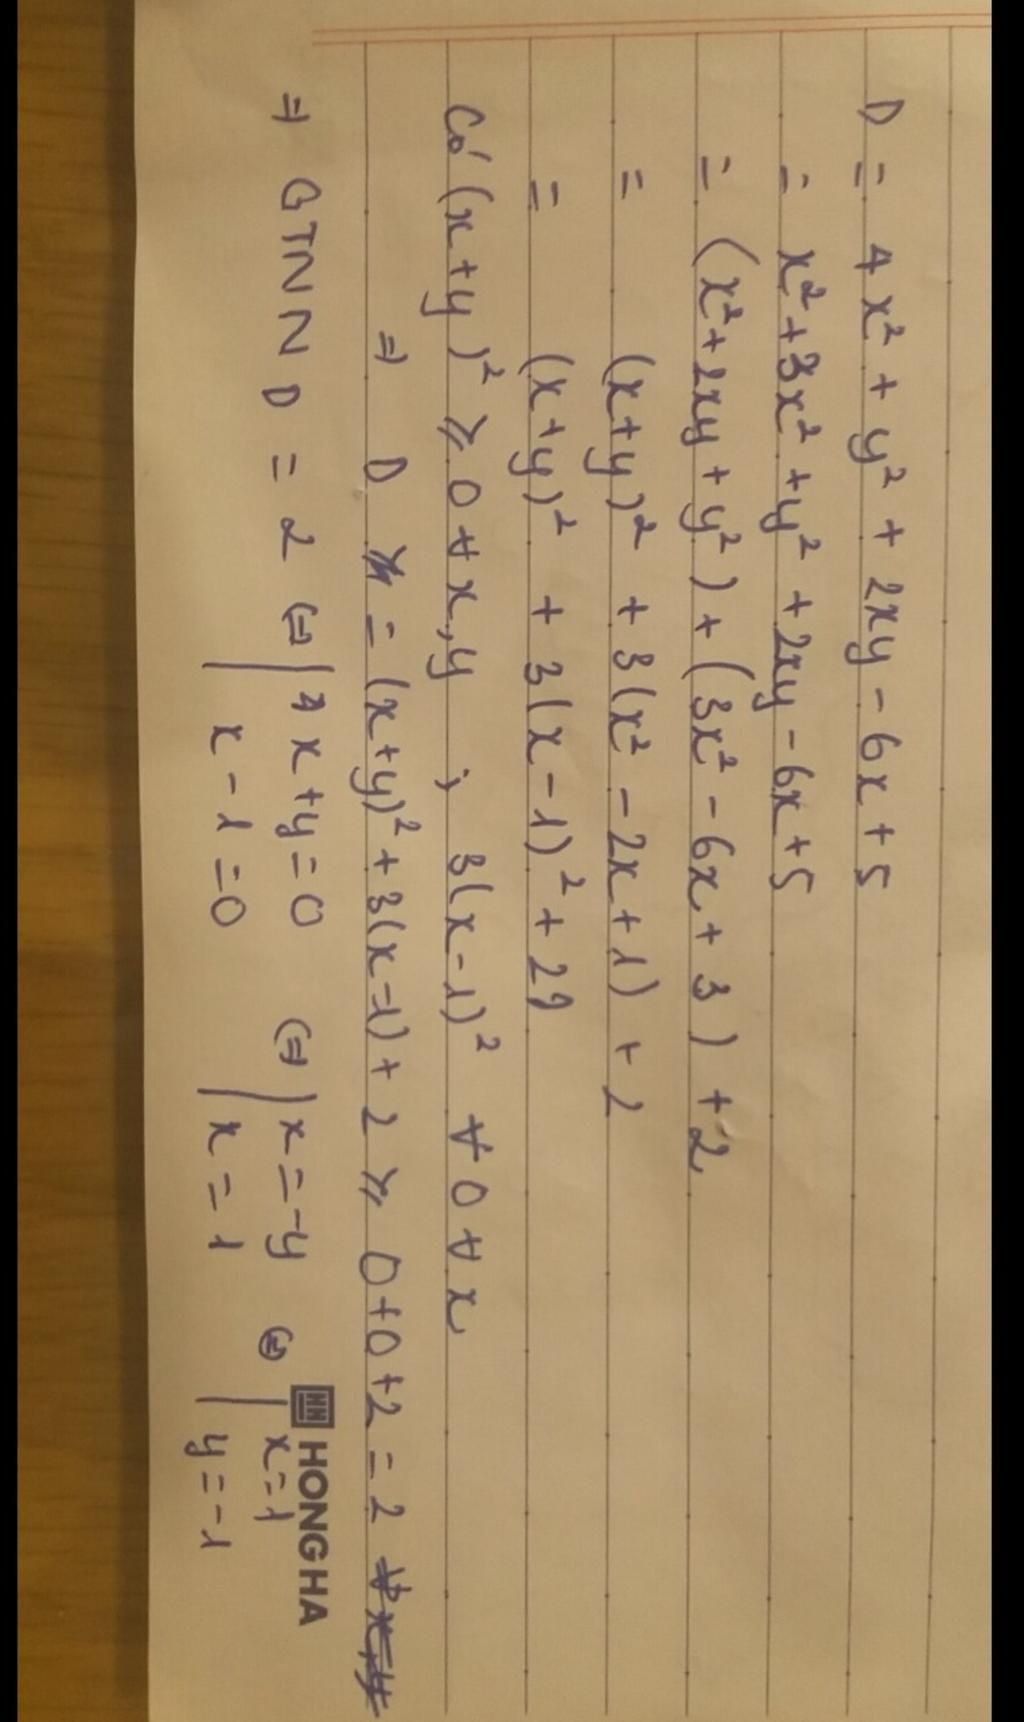 D = 4x² + y² + 2xy - 6x + 5
= x² + 3x² + y² + 2xy - 6x + 5
= (x² + 2xy + y²) + (3x² - 6x + 3) + 2
= (x+y)² + 3(x² - 2x + 1) + 2
= (x+y)² + 3(x-1)² + 2
Có (x+y)² ≥ 0 ∀ x,y ; 3(x-1)² ∀ 0 ∀ x
⇒ D = (x+y)² + 3(x-1) + 2 ≥ 0+0+2 = 2
⇒ GTNN D = 2 ⇔ | x+y=0 ⇔ | x=-y ⇔ | x=1
| x-1=0 | x=1 | y=-1
HONG HA